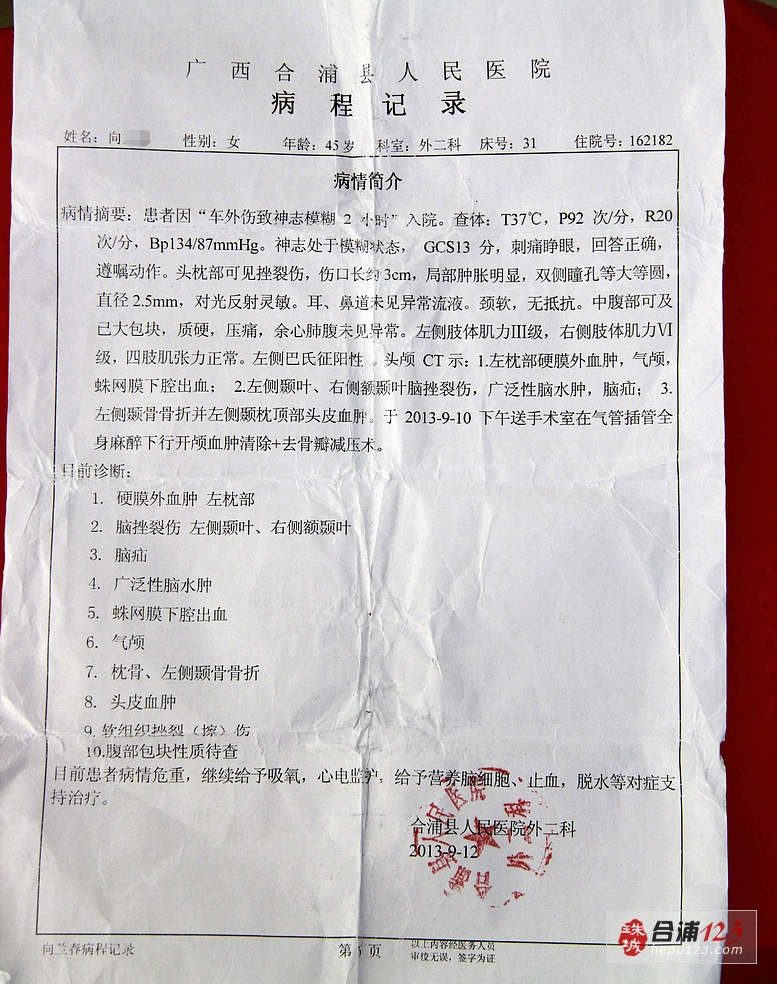 广西合浦县人民医院
病程记录
姓名：向 性别：女 年龄：45岁 科室：外二科 床号：31 住院号：162182
病情简介
病情摘要：患者因“车外伤致神志模糊 2 小时”入院。查体：T37℃，P92 次/分，R20
次/分，Bp134/87mmHg。神志处于模糊状态， GCS13 分，刺痛睁眼，回答正确，
遵嘱动作。头枕部可见挫裂伤，伤口长约3cm，局部肿胀明显，双侧瞳孔等大等圆，
直径2.5mm，对光反射灵敏。耳、鼻道未见异常流液。颈软，无抵抗。中腹部可及
已大包块，质硬，压痛，余心肺腹未见异常。左侧肢体肌力Ⅲ级，右侧肢体肌力Ⅵ
级，四肢肌张力正常。左侧巴氏征阳性 。头颅 CT 示：1.左枕部硬膜外血肿，气颅，
蛛网膜下腔出血； 2.左侧颞叶、右侧额颞叶脑挫裂伤，广泛性脑水肿，脑疝； 3.
左侧颞骨骨折并左侧颞枕顶部头皮血肿。于 2013-9-10 下午送手术室在气管插管全
身麻醉下行开颅血肿清除+去骨瓣减压术。
目前诊断：
1. 硬膜外血肿 左枕部
2. 脑挫裂伤 左侧颞叶、右侧额颞叶
3. 脑疝
4. 广泛性脑水肿
5. 蛛网膜下腔出血
6. 气颅
7. 枕骨、左侧颞骨骨折
8. 头皮血肿
9. 软组织挫裂（擦）伤
10.腹部包块性质待查
目前患者病情危重，继续给予吸氧，心电监护，给予营养脑细胞、止血，脱水等对症支
持治疗。
合浦县人民医院外二科
2013-9-12
向兰春病程记录 第 页 以上内容经医务人员
审校无误，签字为证
珠城 合浦123
hepu123.com